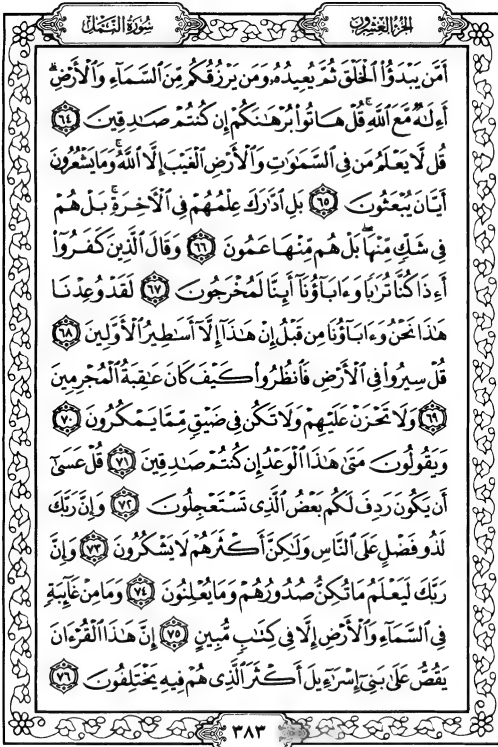 الجزء العشرون
سورة النمل
أَمَّن يَبْدَؤُا۟ الْخَلْقَ ثُمَّ يُعِيدُهُۥ وَمَن يَرْزُقُكُم مِّنَ السَّمَآءِ وَالْأَرْضِ ۗ
أَءِلَٰهٌ مَّعَ اللَّهِ ۚ قُلْ هَاتُوا۟ بُرْهَٰنَكُمْ إِن كُنتُمْ صَٰدِقِينَ ٦٤
قُل لَّا يَعْلَمُ مَن فِى السَّمَٰوَٰتِ وَالْأَرْضِ الْغَيْبَ إِلَّا اللَّهُ ۚ وَمَا يَشْعُرُونَ
أَيَّانَ يُبْعَثُونَ ٦٥ بَلِ ادَّٰرَكَ عِلْمُهُمْ فِى الْـَٔاخِرَةِ ۚ بَلْ هُمْ
فِى شَكٍّ مِّنْهَا ۖ بَلْ هُم مِّنْهَا عَمُونَ ٦٦ وَقَالَ الَّذِينَ كَفَرُوٓا۟
أَءِذَا كُنَّا تُرَٰبًا وَءَابَآؤُنَآ أَئِنَّا لَمُخْرَجُونَ ٦٧ لَقَدْ وُعِدْنَا
هَٰذَا نَحْنُ وَءَابَآؤُنَا مِن قَبْلُ إِنْ هَٰذَآ إِلَّآ أَسَٰطِيرُ الْأَوَّلِينَ ٦٨
قُلْ سِيرُوا۟ فِى الْأَرْضِ فَانظُرُوا۟ كَيْفَ كَانَ عَٰقِبَةُ الْمُجْرِمِينَ
٦٩ وَلَا تَحْزَنْ عَلَيْهِمْ وَلَا تَكُن فِى ضَيْقٍ مِّمَّا يَمْكُرُونَ ٧٠
وَيَقُولُونَ مَتَىٰ هَٰذَا الْوَعْدُ إِن كُنتُمْ صَٰدِقِينَ ٧١ قُلْ عَسَىٰٓ
أَن يَكُونَ رَدِفَ لَكُم بَعْضُ الَّذِى تَسْتَعْجِلُونَ ٧٢ وَإِنَّ رَبَّكَ
لَذُو فَضْلٍ عَلَى النَّاسِ وَلَٰكِنَّ أَكْثَرَهُمْ لَا يَشْكُرُونَ ٧٣ وَإِنَّ
رَبَّكَ لَيَعْلَمُ مَا تُكِنُّ صُدُورُهُمْ وَمَا يُعْلِنُونَ ٧٤ وَمَا مِنْ غَآئِبَةٍ
فِى السَّمَآءِ وَالْأَرْضِ إِلَّا فِى كِتَٰبٍ مُّبِينٍ ٧٥ إِنَّ هَٰذَا الْقُرْءَانَ
يَقُصُّ عَلَىٰ بَنِىٓ إِسْرَٰٓءِيلَ أَكْثَرَ الَّذِى هُمْ فِيهِ يَخْتَلِفُونَ ٧٦
٣٨٣